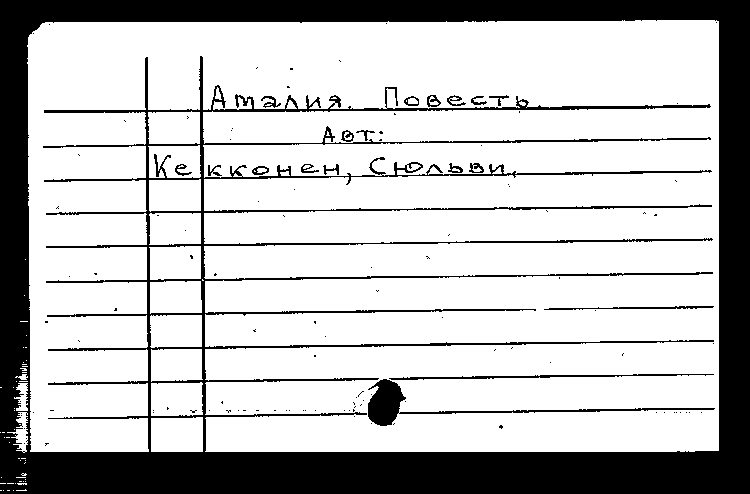 Амалия. Повесть.
Авт.:
Кекконен, Сюльви.